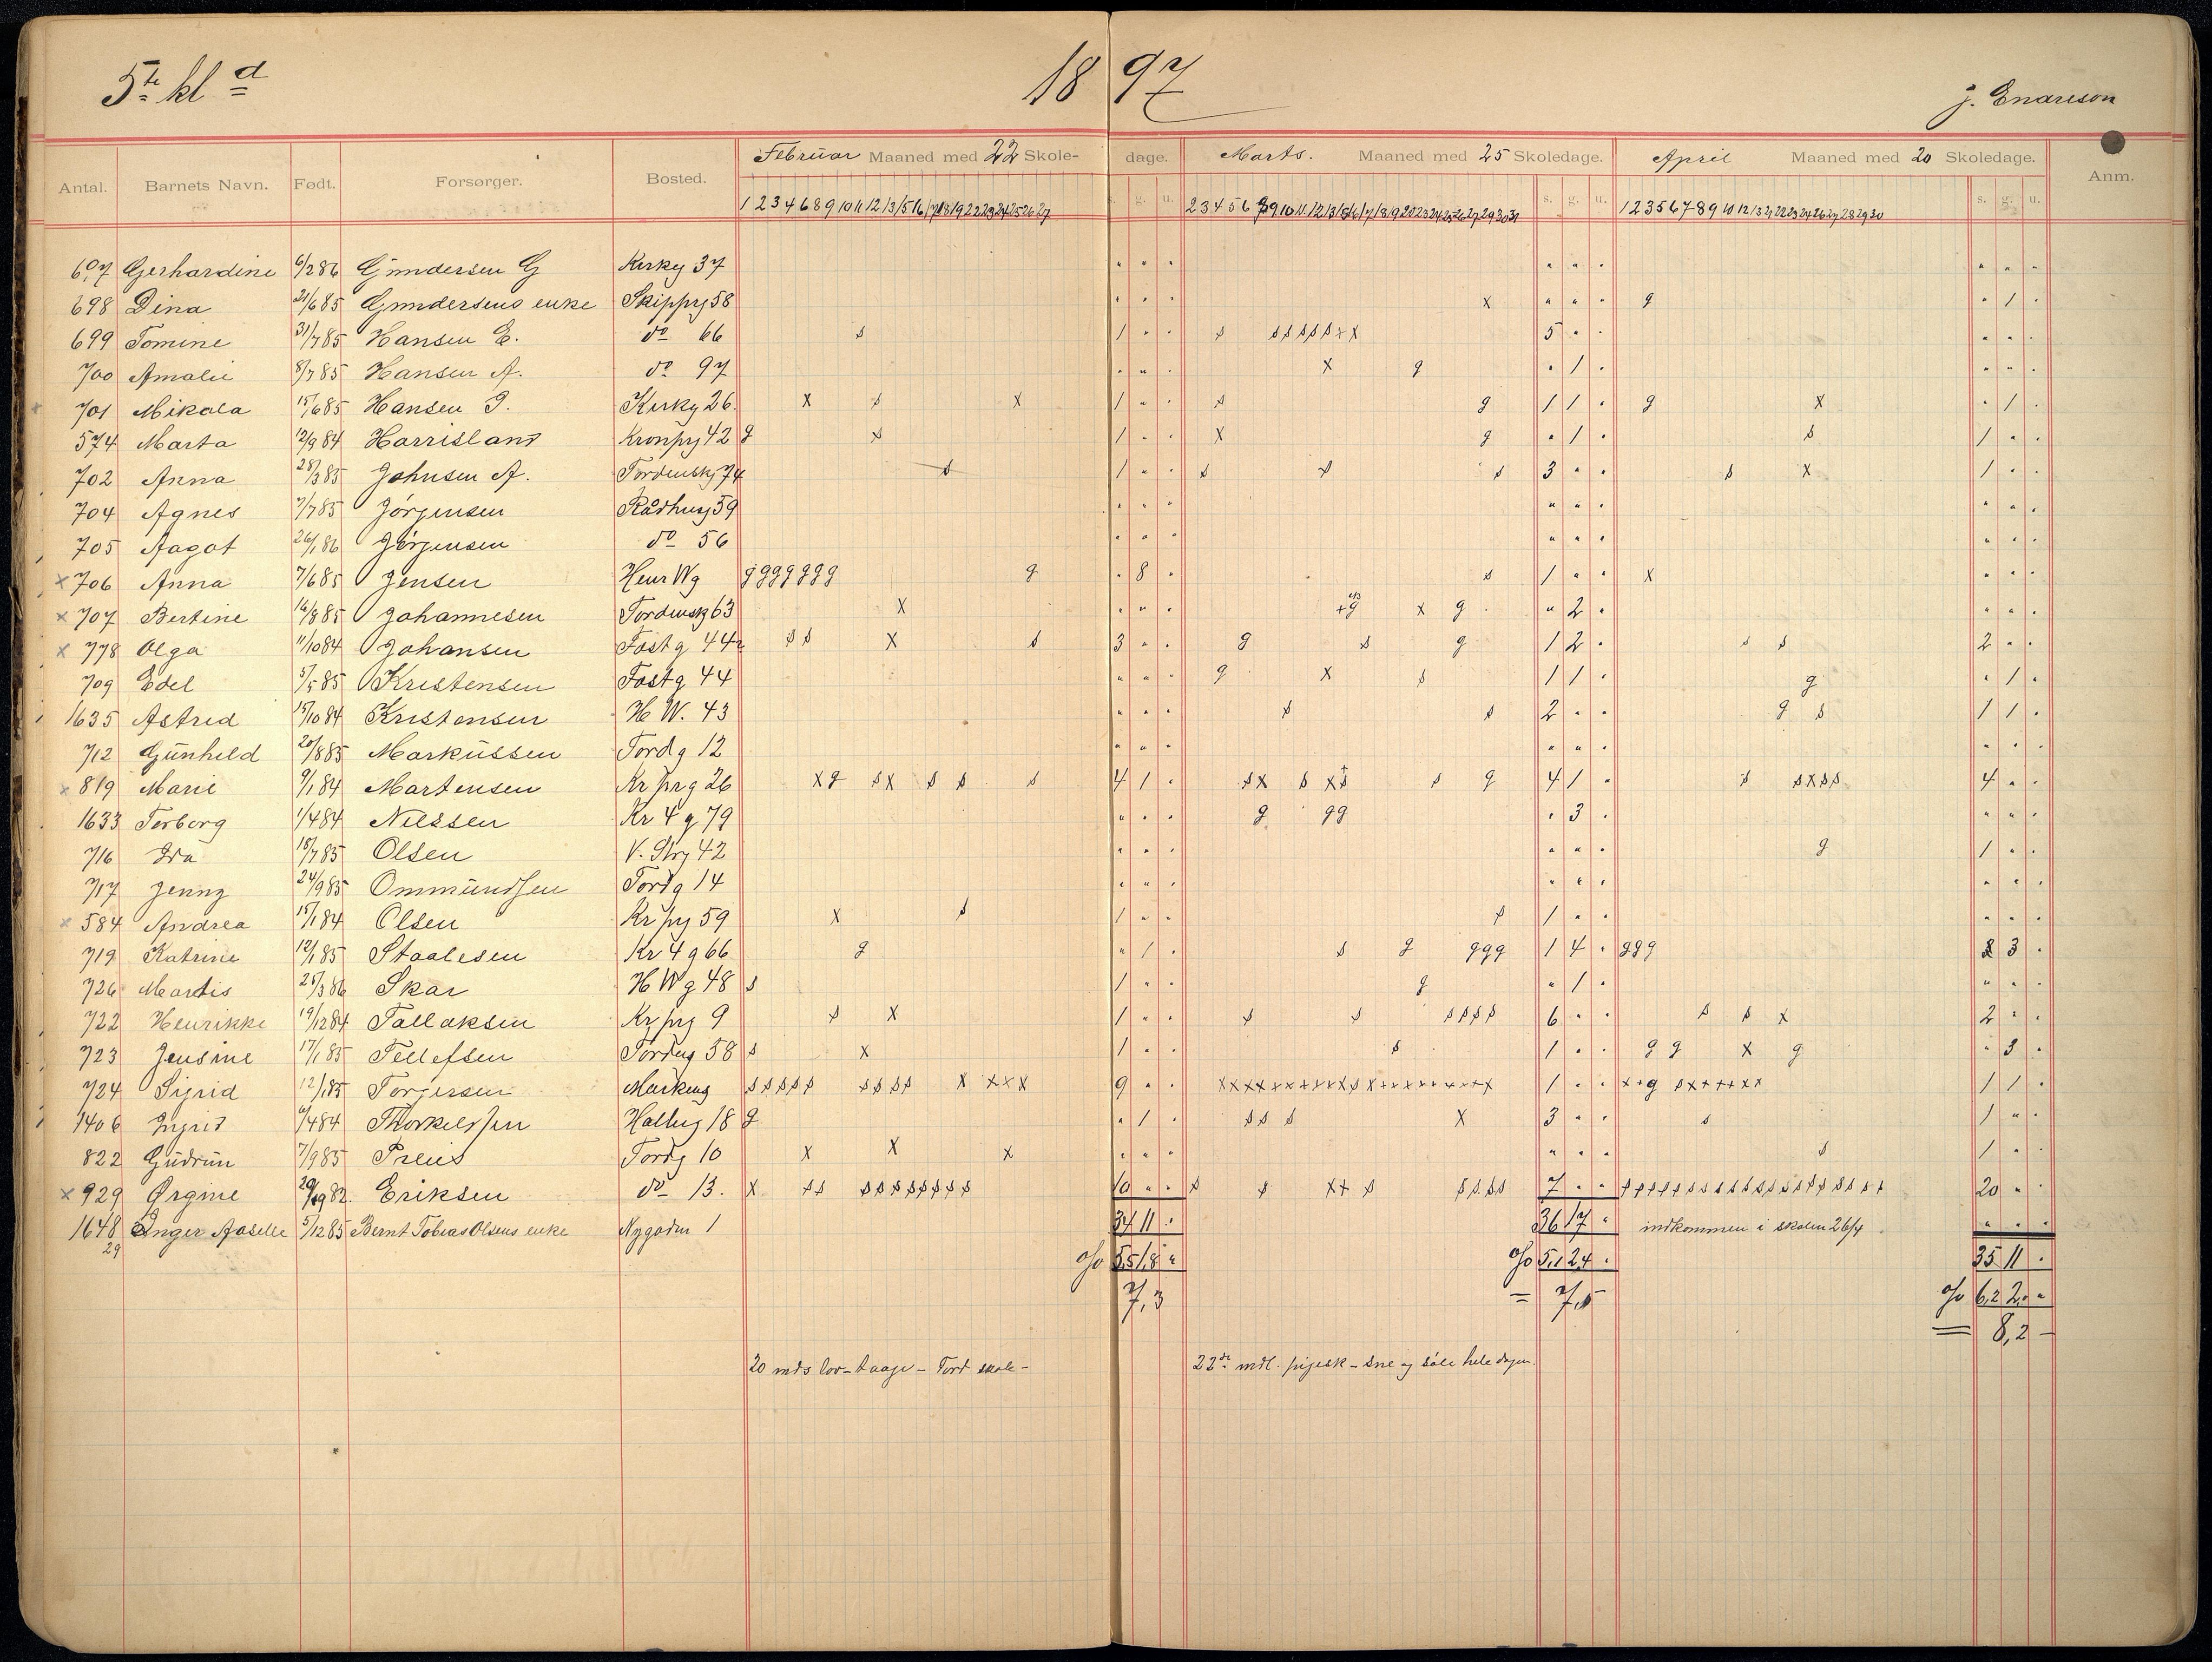 5te kl d 1897 J. Enarson
Februar Maaned med 22 Skoledage. Marts. Maaned med 25 Skoledage. April Maaned med 20 Skoledage.
Antal. Barnets Navn. Født. Forsørger. Bosted. s. g. u. s. g. u. s. g. u. Anm.
697 Gerhardine 6/2 86 Gundersen G Kirkg 37 " " " " " " " " "
698 Dina 21/6 85 Gundersens enke Skipprg 58 " " " x " " " g " 1 "
699 Tomine 31/7 85 Hansen E. do 66 s 1 " " s sssssxx 5 " " " " "
700 Amalie 8/7 85 Hansen A. do 97 " " " x g " 1 " " " "
701 Mikala 15/6 85 Hansen I. Kirkg 26. x s x 1 " " s g 1 1 " g x " 1 "
574 Marta 12/9 84 Harrisland Kronprg 42 g s 1 " " x g " 1 " s 1 " "
702 Anna 28/3 85 Johnsen A. Tordenskj 74 s 1 " " s s s 3 " " s x 1 " "
704 Agnes 7/7 85 Jörgensen Rådhusg 59 " " " " " " " " "
705 Aagot 26/1 86 Jörgensen do 56 " " " " " " " " "
x 706 Anna 7/6 85 Jensen Henr Wg ggggggg g " 8 " s 1 " " x " " "
x 707 Bertine 16/8 85 Johannesen Tordensk 63 x " " " +g x g " 2 " " " "
x 778 Olga 11/10 84 Johansen Fästg 44a s s x s 3 " " g s g 1 2 " s s 2 " "
709 Edel 5/5 85 Kristensen Fastg 44 " " " g x s 1 1 " g " 1 "
1635 Astrid 15/10 84 Kristensen H W. 43 " " " s s 2 " " g s 1 1 "
712 Günhild 20/8 85 Marküssen Tordg 12 " " " " " " " " "
x 819 Marie 9/1 84 Martensen Kr prg 26 x g s x s s s 4 1 " s x s x s s g 4 1 " s s x s s 4 " "
1633 Torborg 1/4 84 Nilssen Kr 4 g 79 " " " g gg " 3 " " " "
716 Ida 18/7 85 Olsen V. Strg 42 " " " " " " g 1 " "
717 Jenny 24/9 85 Ommündsen Tordg 14 " " " " " " " " "
x 584 Andrea 15/1 84 Olsen Kr prg 59 x s 1 " " s 1 " " " " "
719 Katrine 12/1 85 Staalesen Kr 4 g 66 g " 1 " s g ggg 1 4 " ggg 3 "
726 Mardis 25/3 86 Skar H Wg 48 s 1 " " g " 1 " " " "
722 Henrikke 19/12 84 Tallaksen Kr prg 9 s x 1 " " s s ssss 6 " " s s x 2 " "
723 Jensine 17/1 85 Tellefsen Tordensg 58 s x 1 " " s 1 " " g g x g " 3 "
724 Sigrid 12/1 85 Torjussen Markens sssss ssss x xxx 9 " " xxxxxxxxxxsx+++++++++x 1 " " x+g sx+++xx 1 1 "
1406 Ingrid 6/4 84 Thorkelsen Holbg 18 g " 1 " s s s x 3 " " s 1 " "
822 Güdrün 7/9 85 Preus Tordg 10 x x x " " " " " " s 1 " "
x 929 Ørgine 29/9 82. Eriksen do 13. x ss ssssssss 10 " " s s x+ s ssss 7 " " ssssssssssssssssssss 20 " "
1648 Inger Aaselle 5/12 85 Bernt Tobias Olsens enke Nygaden 1 34 11 " 36 17 " indkommen i skolen 26/4 " " "
29 % 5,5 1,8 " % 5,1 2,4 " 35 11 "
7,3 = 7,5 % 6,2 2,0 "
= 8,2 -
20 mds lov - taage - Tord skole - 22de mdl. pigesk - sne og såle hele dagen.